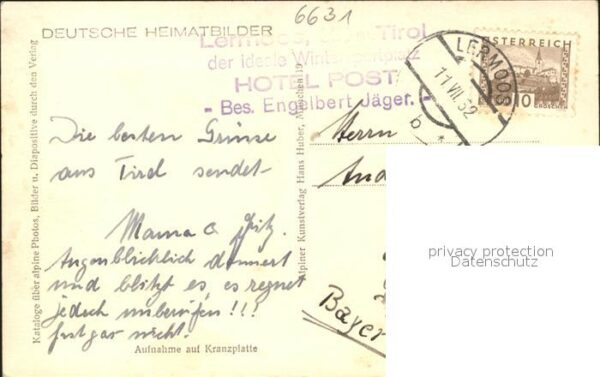 6631
DEUTSCHE HEIMATBILDER
Lermoos, Tirol
der ideale Wintersportplatz
HOTEL POST
- Bes. Engelbert Jäger. -
LERMOOS
11.VII.32
b *
ÖSTERREICH
10
GROSCHEN
Kataloge über alpine Photos, Bilder u. Diapositive durch den Verlag
Alpiner Kunstverlag Hans Huber, München 19
Die besten Grüsse
aus Tirol sendet
Mama &
Augenblicklich donnert
und blitzt es, es regnet
jedoch unberufen!!!
fast gar nicht.
Aufnahme auf Kranzplatte
Herrn
And
Bayer
privacy protection
Datenschutz